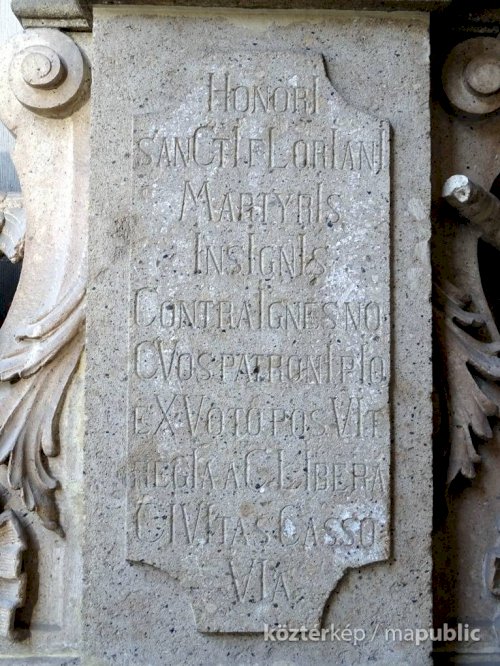 HonorI
sanCtI fLorIanI
MartyrIs
InsIgnIs
ContraIgnesno
CVospatronIpIo
eXVotoposVIt
regIaaCLIbera
CIVItasCasso
VIa
köztérkép / mapublic